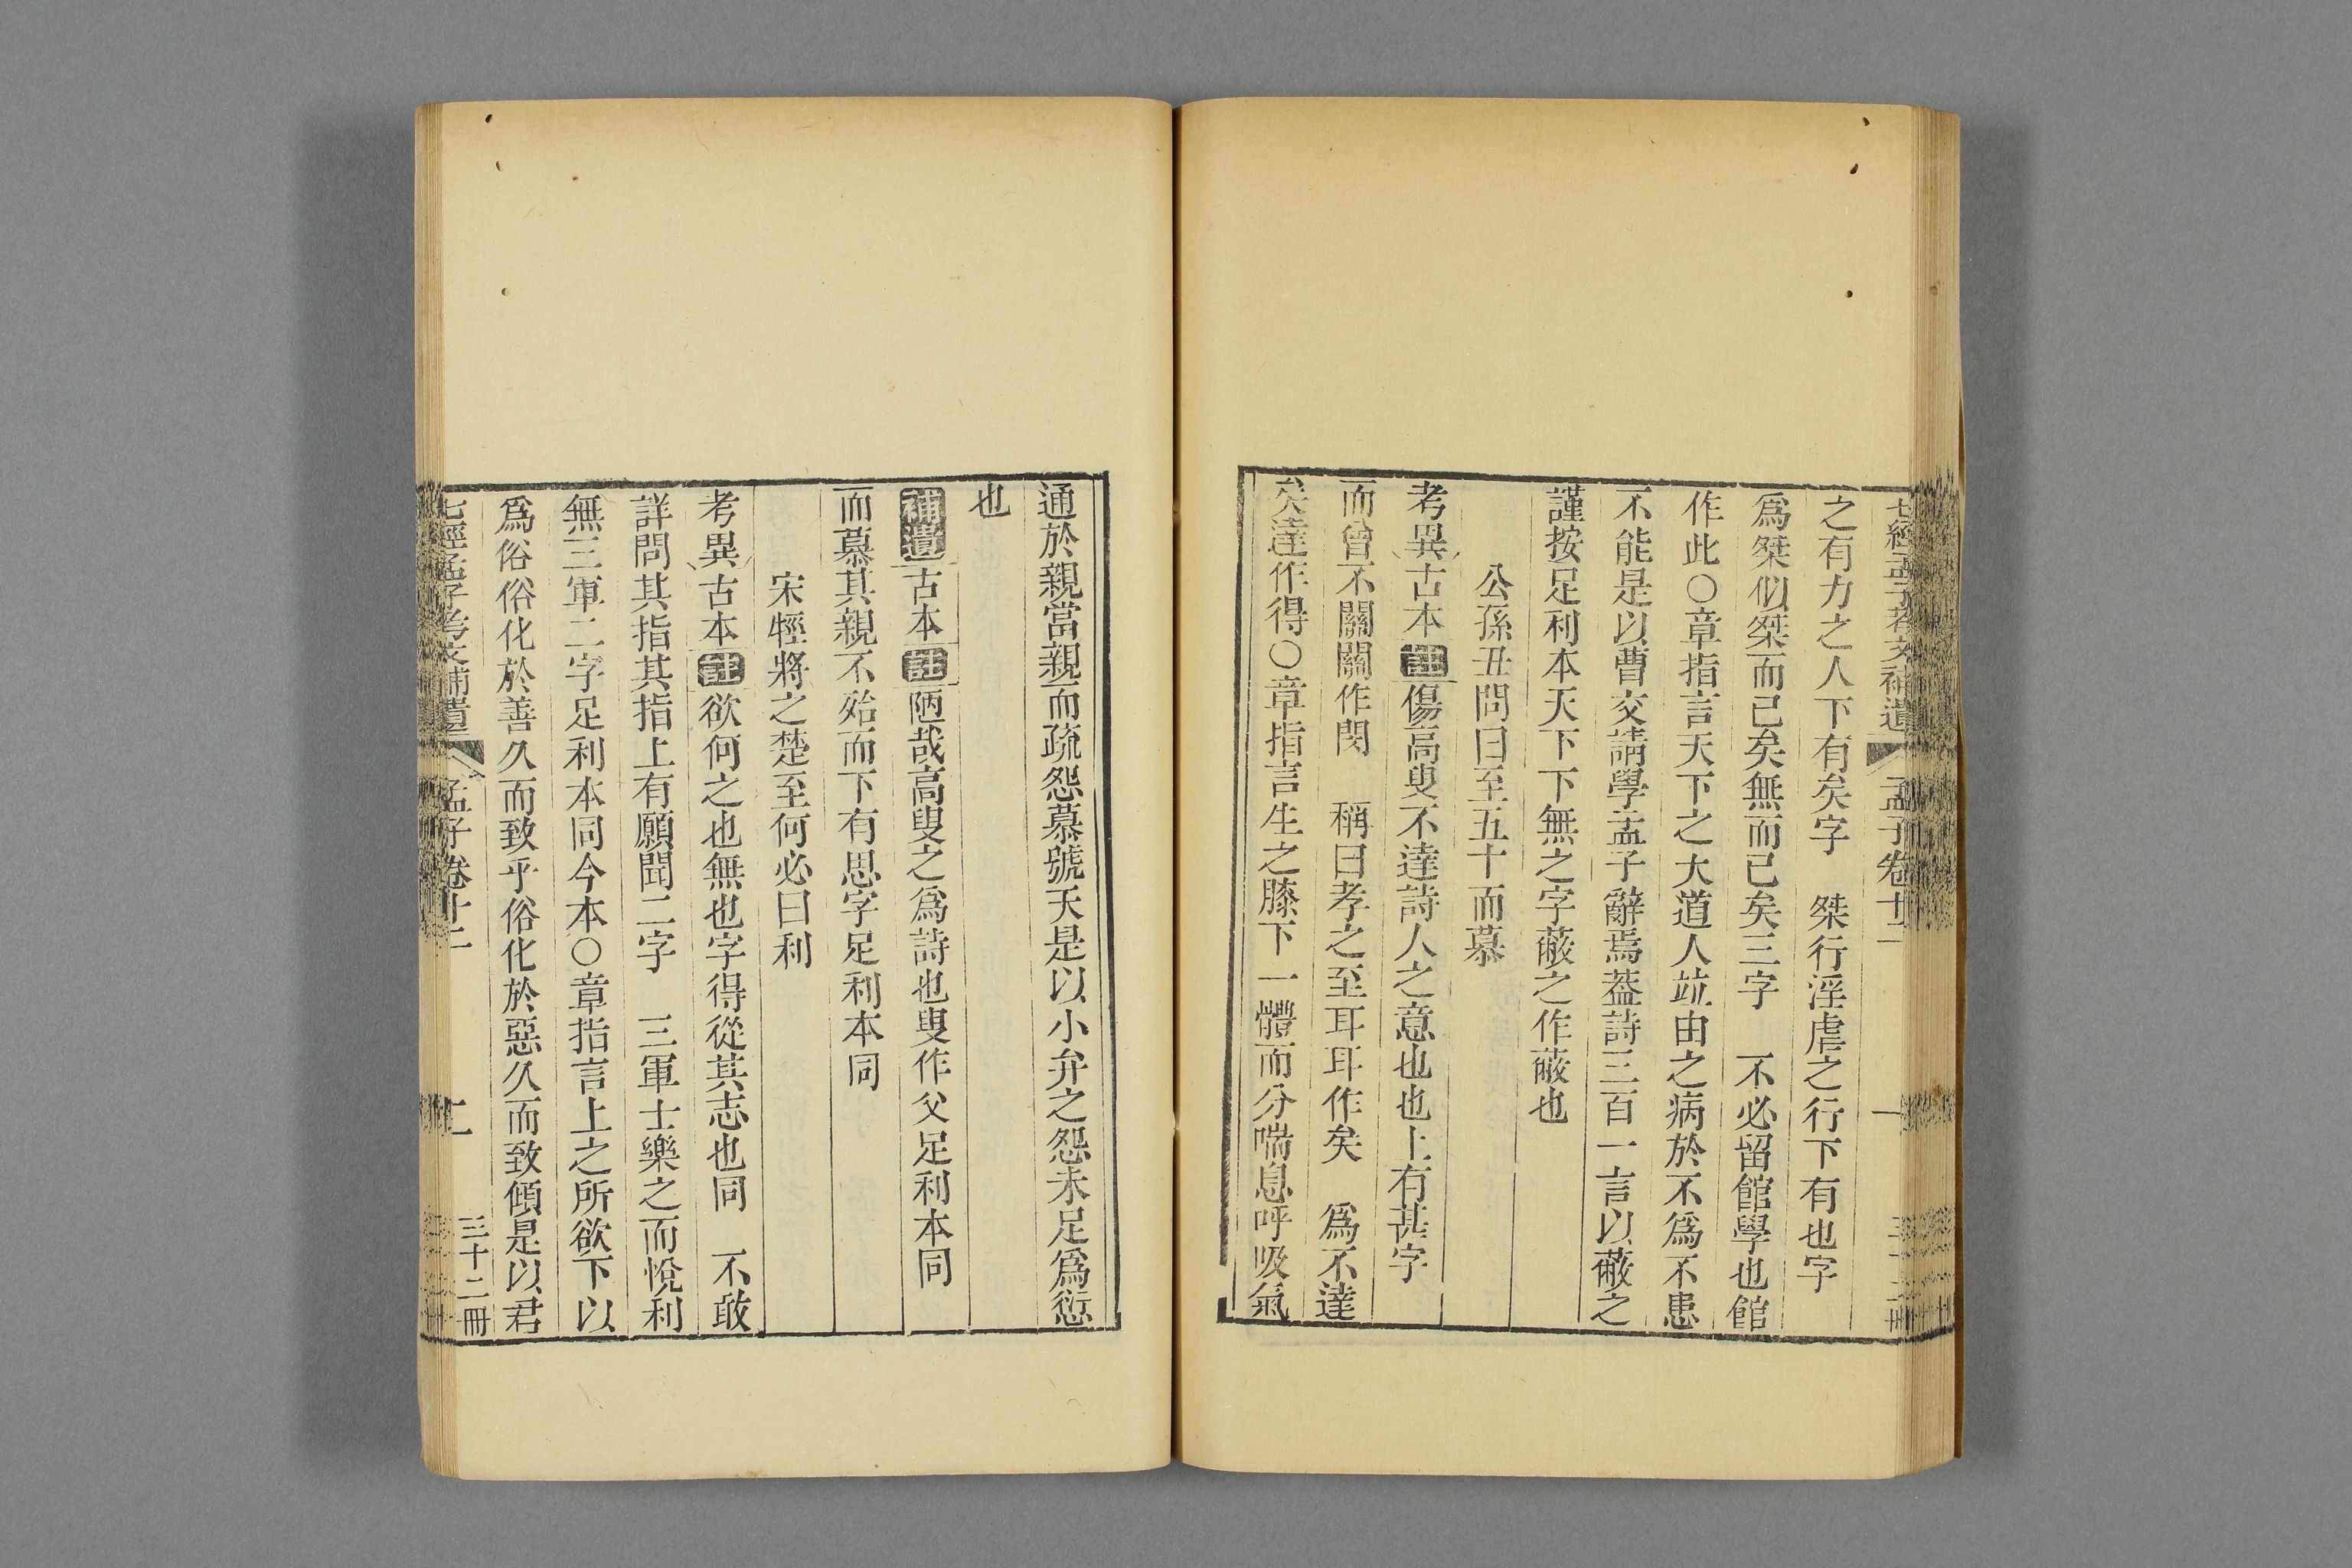 七經孟子考文補遺　孟子卷十二
之有力之人下有矣字　桀行淫虐之行下有也字
爲桀似桀而已矣無而已矣三字　不必留館學也館
作此○章指言天下之大道人竝由之病於不爲不患
不能是以曹交請學孟子辭焉葢詩三百一言以蔽之
謹按足利本天下下無之字蔽之作蔽也
公孫丑問曰至五十而慕
考異古本註傷高叟不達詩人之意也也上有甚字
而曾不關關作閔　稱曰孝之至耳耳作矣　爲不達
矣達作得○章指言生之膝下一體而分喘息呼吸氣
通於親當親而疏怨慕號天是以小弁之怨未足爲愆
也
補遺古本註陋哉高叟之爲詩也叟作父足利本同
而慕其親不殆而下有思字足利本同
宋牼將之楚至何必曰利
考異古本註欲何之也無也字得從其志也同　不敢
詳問其指其指上有願聞二字　三軍士樂之而悅利
無三軍二字足利本同今本○章指言上之所欲下以
爲俗俗化於善久而致乎俗化於惡久而致傾是以君
七經孟子考文補遺　孟子卷十二　三十二冊